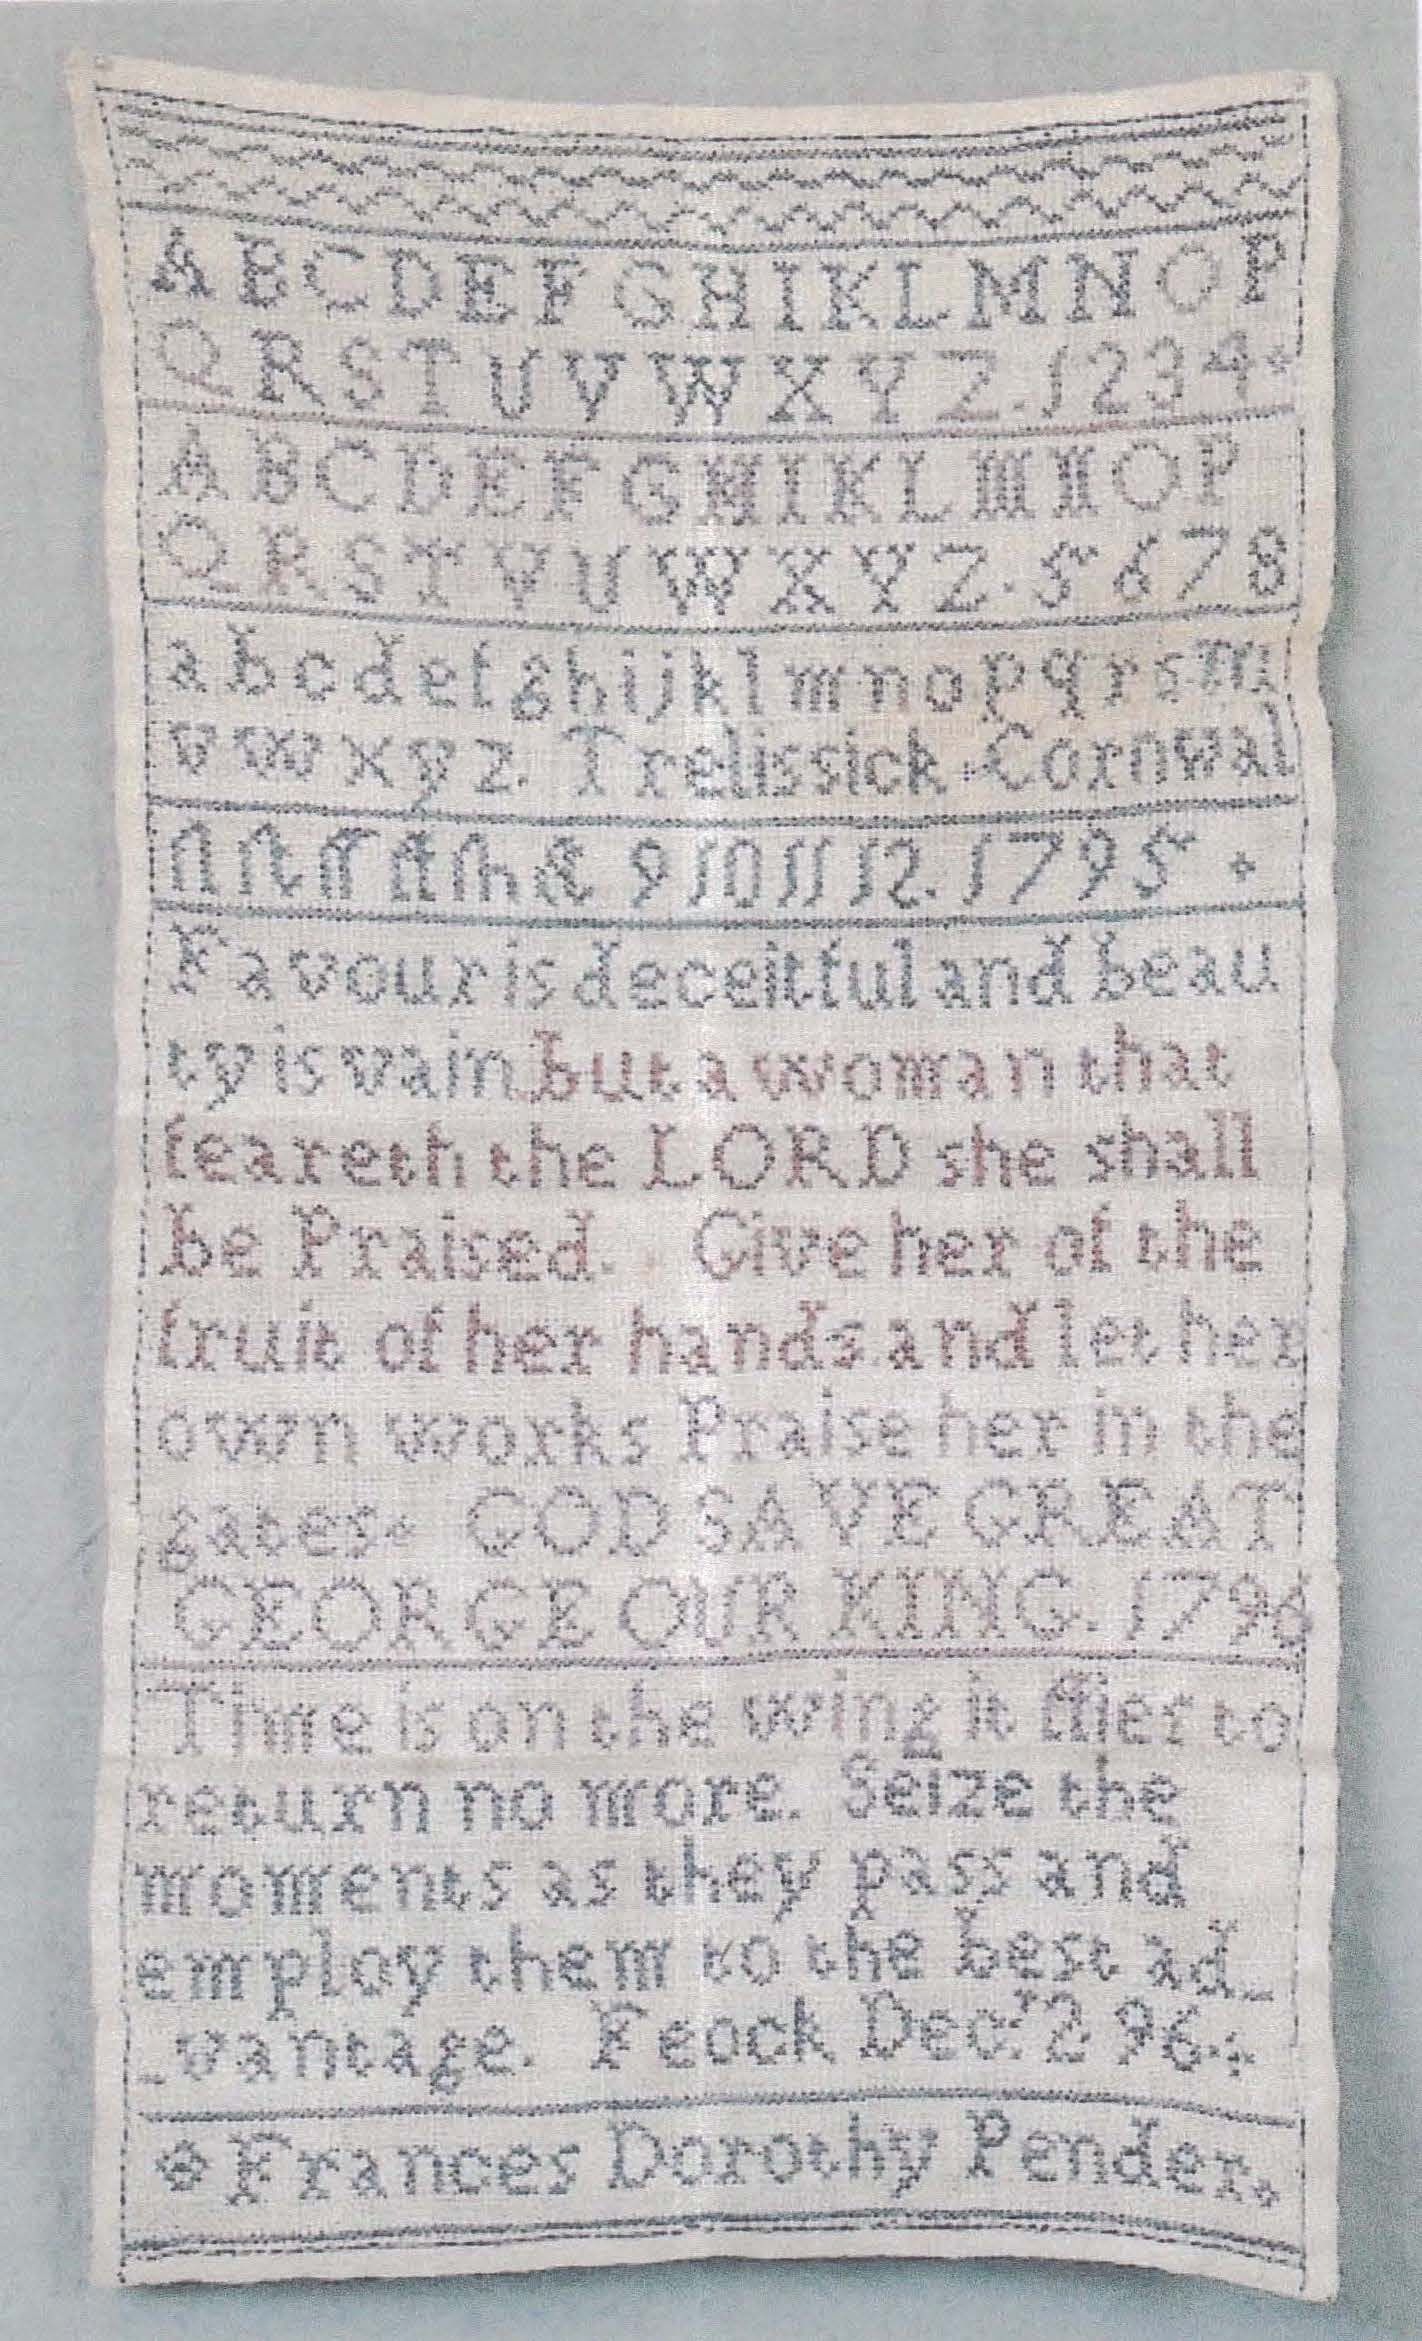 A B C D E F G H I K L M N O P
Q R S T U V W X Y Z . 1 2 3 4
A B C D E F G H I K L M N O P
Q R S T V U W X Y Z . 5 6 7 8
a b c d e f g h i j k l m n o p q r s
v w x y z. Trelissick Cornwal
& 9 10 11 12. 1795
Favour is deceitful and beau
ty is vain but a woman that
feareth the LORD she shall
be Praised. Give her of the
fruit of her hands and let her
own works Praise her in the
gates. GOD SAVE GREAT
GEORGE OUR KING. 1796
Time is on the wing it flies to
return no more. Seize the
moments as they pass and
employ them to the best ad_
_vantage. Feock Dec.r 2 96.
Frances Dorothy Pender.